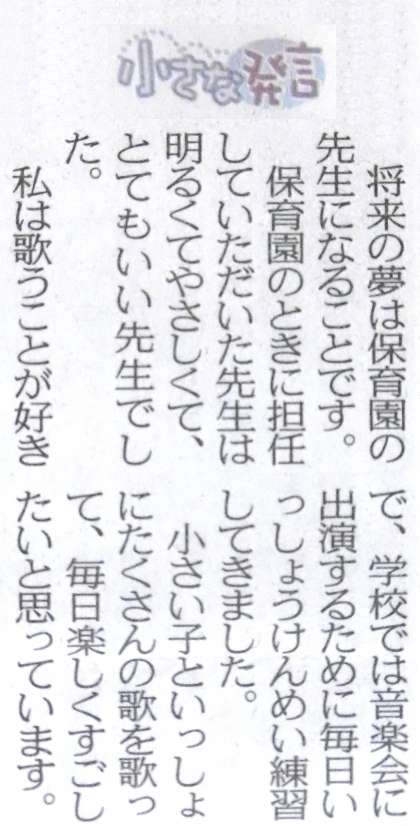 小さな発言
将来の夢は保育園の
先生になることです。
保育園のときに担任
していただいた先生は
明るくてやさしくて、
とてもいい先生でし
た。
私は歌うことが好き
で、学校では音楽会に
出演するために毎日い
っしょうけんめい練習
してきました。
小さい子といっしょ
にたくさんの歌を歌っ
て、毎日楽しくすごし
たいと思っています。